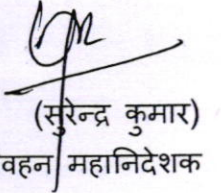 (सुरेन्द्र कुमार)
वहन महानिदेशक